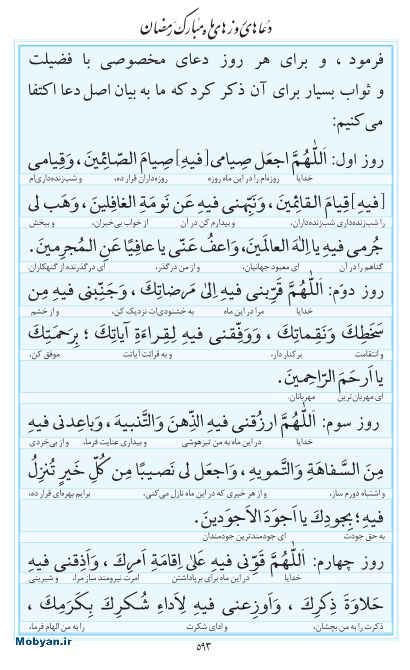 دعاهای روزهای ماه مبارک رمضان
فرمود ، و برای هر روز دعای مخصوصی با فضیلت
و ثواب بسیار برای آن ذکر کرد که ما به بیان اصل دعا اکتفا
می‌کنیم:
روز اول: اَللّٰهُمَّ اجعَل صِیامی [فیهِ] صِیامَ الصّائِمینَ ، وَقِیامی
خدایا روزه‌ام را در این ماه روزه روزه‌داران قرار ده، و شب‌زنده‌داری‌ام
[فیهِ] قِیامَ القائِمینَ ، وَنَبِّهنی فیهِ عَن نَومَةِ الغافِلینَ ، وَهَب لی
را شب‌زنده‌داری شب‌زنده‌داران، و بیدارم کن در آن از خواب بی‌خبران، و ببخش
جُرمی فیهِ یا اِلٰهَ العالَمینَ، وَاعفُ عَنّی یا عافِیًا عَنِ المُجرِمینَ.
گناهم را در آن ای معبود جهانیان، و از من درگذر، ای درگذرنده از گنهکاران
روز دوّم: اَللّٰهُمَّ قَرِّبنی فیهِ اِلیٰ مَرضاتِكَ ، وَجَنِّبنی فیهِ مِن
خدایا مرا در این ماه به خشنودی‌ات نزدیک کن، و از خشم
سَخَطِكَ وَنَقِماتِكَ ، وَوَفِّقنی فیهِ لِقِراءَةِ آیاتِكَ ؛ بِرَحمَتِكَ
و انتقامت بر کنار دار، و به قرائت آیاتت موفق کن،
یا اَرحَمَ الرّاحِمینَ.
ای مهربان‌ترین مهربانان.
روز سوم: اَللّٰهُمَّ ارزُقنی فیهِ الذِّهنَ وَالتَّنبیهَ ، وَباعِدنی فیهِ
خدایا در این ماه به من تیزهوشی و بیداری عنایت فرما، و از بی‌خردی
مِنَ السَّفاهَةِ وَالتَّمویهِ، وَاجعَل لی نَصیبًا مِن کُلِّ خَیرٍ تُنزِلُ
و اشتباه دورم ساز، و از هر خیری که در این ماه نازل می‌کنی، برایم بهره‌ای قرار ده،
فیهِ؛ بِجودِكَ یا اَجوَدَ الاَجوَدینَ.
به حق جودت ای جودمندترین جودمندان.
روز چهارم: اَللّٰهُمَّ قَوِّنی فیهِ عَلیٰ اِقامَةِ اَمرِكَ ، وَاَذِقنی فیهِ
خدایا در این ماه برای برپاداشتن امرت نیرومند ساز مرا، و شیرینی
حَلاوَةَ ذِکرِكَ ، وَاَوزِعنی فیهِ لِاَداءِ شُکرِكَ بِکَرَمِكَ ،
ذکرت را به من بچشان، و ادای شکرت را به من الهام فرما،
۵۹۳
Mobyan.ir